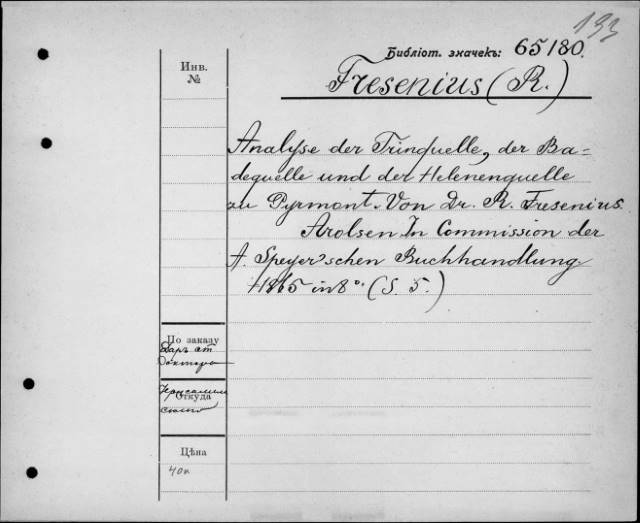 193
Библіот. значекъ: 65/180.
Инв.
№
Fresenius (R.)
Analyse der Trinquelle, der Ba-
dequelle und der Helenenquelle
zu Pyrmont. Von Dr. R. Fresenius
Arolsen In Commission der
A. Speyer'schen Buchhandlung
1865 in 8°. (S. 5.)
По заказу
Даръ от
доктора
Откуда
Цѣна
40к